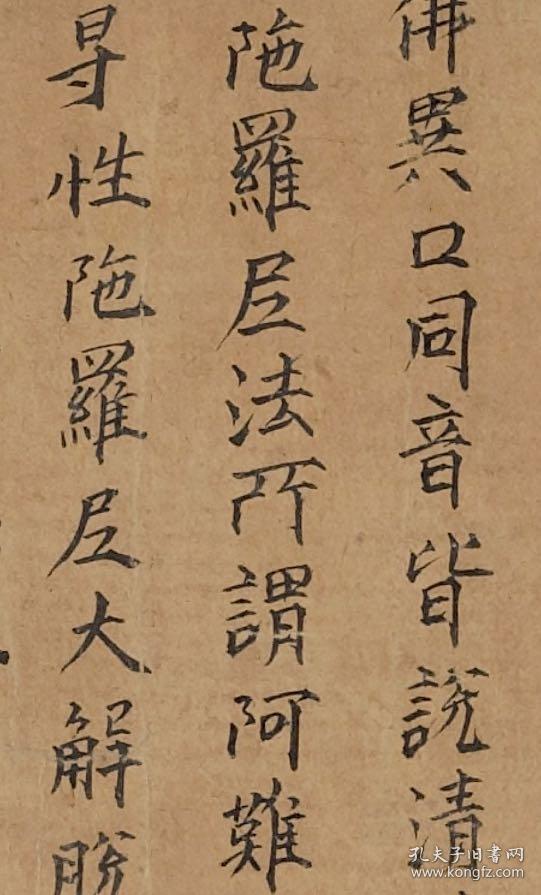 佛異口同音皆說清
陁羅尼法所謂阿難
㝵性陁羅尼大解脫
孔夫子旧书网
www.kongfz.com